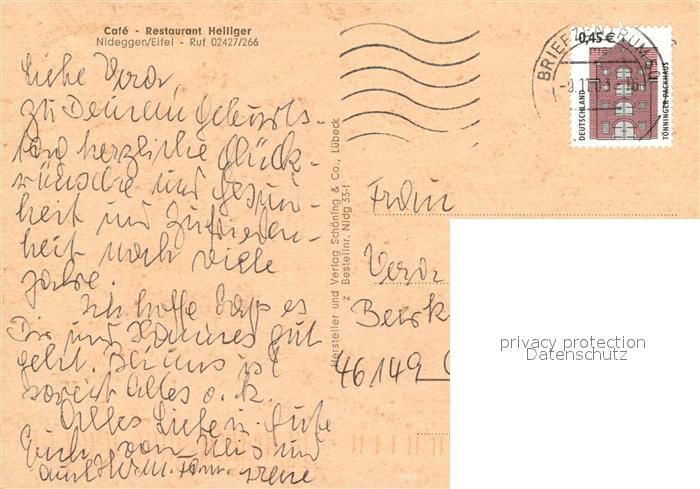 Café - Restaurant Heiliger
Nideggen/Eifel - Ruf 02427/266
Liebe Vera,
zu Deinem Geburts-
tag herzliche Glück-
wünsche und Gesun-
heit und Zufrieden-
heit noch viele
Jahre.
Ich hoffe dass es
Dir und Hannes gut
geht. Bei uns ist
soweit alles o.k.
Alles Liebe u. Gute
Euch von Uli's und
Irene
Hersteller und Verlag Schöning & Co., Lübeck
z Bestellnr. Nidg 33-f
BRIEFZENTRUM 50
0,45 €
DEUTSCHLAND
TÖNNINGER PACKHAUS
Frau
Vera
46149
privacy protection
Datenschutz